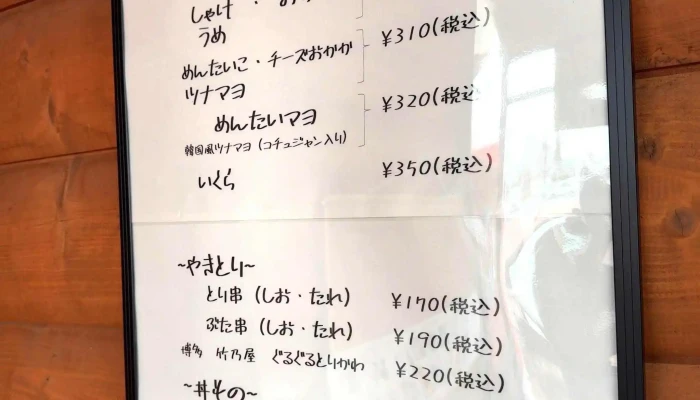 しゃけ・お
うめ
めんたいこ・チーズおかか ¥310(税込)
ツナマヨ
めんたいマヨ ¥320(税込
韓国風ツナマヨ(コチュジャン入り)
いくら ¥350(税込)
~やきとり~
とり串(しお・たれ) ¥170(税込)
ぶた串(しお・たれ) ¥190(税込)
博多 竹乃屋 ぐるぐるとりかわ ¥220(税込)
~丼もの~